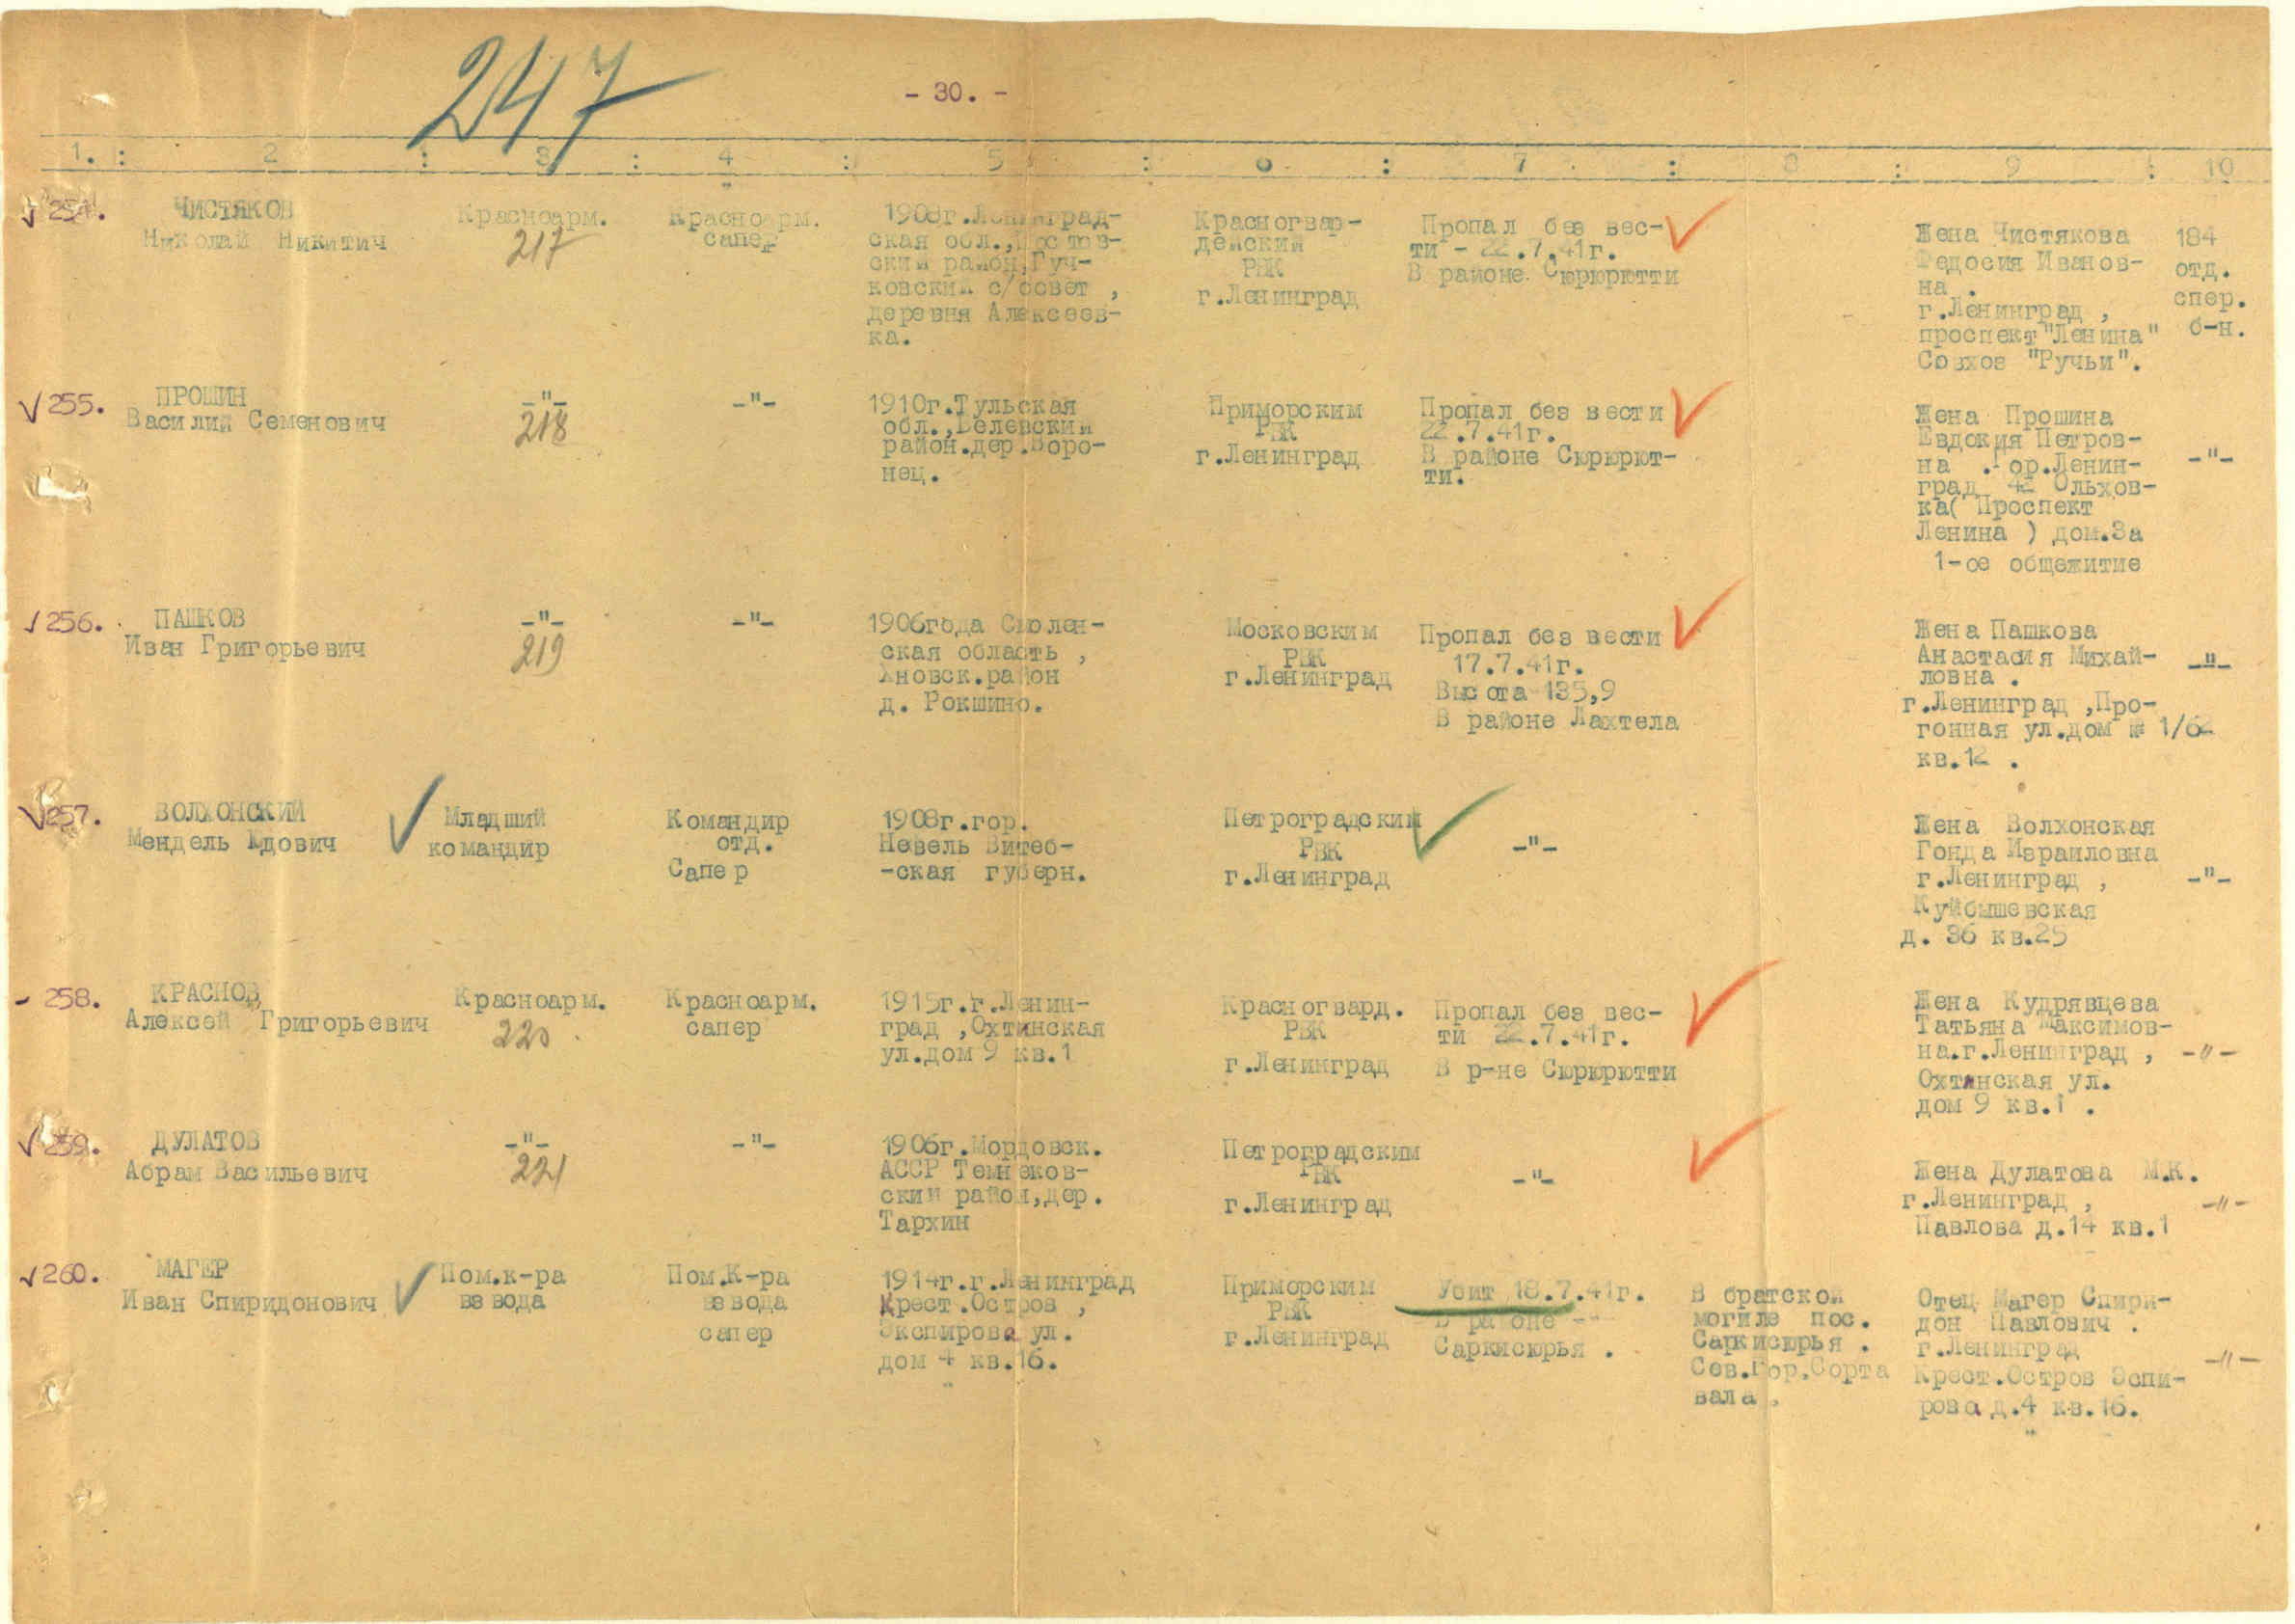 247
- 30. -
1. : 2 : 3 : 4 : 5 : 6 : 7 : 8 : 9 : 10
254.
ЧИСТЯКОВ
Николай Никитич
Красноарм.
217
Красноарм.
сапер
1908г.Ленинград-
ская обл.,
ский район,Гуч-
ковский с/совет ,
деревня Алексеев-
ка.
Красногвар-
дейский
РВК
г.Ленинград
Пропал без вес-
ти - 22.7.41г.
В районе Сюрюрютти
Жена Чистякова
Федосия Иванов-
на .
г.Ленинград ,
проспект "Ленина"
Совхоз "Ручьи".
184
отд.
спер.
б-н.
255.
ПРОШИН
Василий Семенович
-"-
218
-"-
1910г.Тульская
обл.,Белевский
район.дер.Воро-
нец.
Приморским
РВК
г.Ленинград
Пропал без вести
22.7.41г.
В районе Сюрюрют-
ти.
Жена Прошина
Евдокия Петров-
на . Гор.Ленин-
град 42 Ольхов-
ка( Проспект
Ленина ) дом.3а
1-ое общежитие
-"-
256.
ПАШКОВ
Иван Григорьевич
-"-
219
-"-
1906года Смолен-
ская область ,
район
д. Рокшино.
Московским
РВК
г.Ленинград
Пропал без вести
17.7.41г.
Высота 135,9
В районе Лахтела
Жена Пашкова
Анастасия Михай-
ловна .
г.Ленинград ,Про-
гонная ул.дом № 1/62
кв.12 .
-"-
257.
ВОЛХОНСКИЙ
Мендель Юдович
Младший
командир
Командир
отд.
Сапер
1908г.гор.
Невель Витеб-
-ская губерн.
Петроградским
РВК
г.Ленинград
-"-
Жена Волхонская
Гонда Израиловна
г.Ленинград ,
Куйбышевская
д. 36 кв.25
-"-
258.
КРАСНОВ
Алексей Григорьевич
Красноарм.
220
Красноарм.
сапер
1915г.г.Ленин-
град ,Охтинская
ул.дом 9 кв.1
Красногвард.
РВК
г.Ленинград
Пропал без вес-
ти 22.7.41г.
В р-не Сюрюрютти
Жена Кудрявцева
Татьяна Максимов-
на.г.Ленинград ,
Охтинская ул.
дом 9 кв.1 .
-"-
259.
ДУЛАТОВ
Абрам Васильевич
-"-
221
-"-
1906г.Мордовск.
АССР Темнековский-
ский район,дер.
Тархин
Петроградским
РВК
г.Ленинград
-"-
Жена Дулатова М.К.
г.Ленинград ,
Павлова д.14 кв.1
-"-
260.
МАГЕР
Иван Спиридонович
Пом.к-ра
взвода
Пом.К-ра
взвода
сапер
1914г.г.Ленинград
Крест.Остров ,
Экспирова ул.
дом 4 кв.16.
Приморским
РВК
г.Ленинград
Убит 18.7.41г.
В районе --
Саркисюрья .
В братской
могиле пос.
Саркисюрья .
Сев.Гор.Сорта
вала.
Отец Магер Спири-
дон Павлович .
г.Ленинград
Крест.Остров Эспи-
рова д.4 кв.16.
-"-